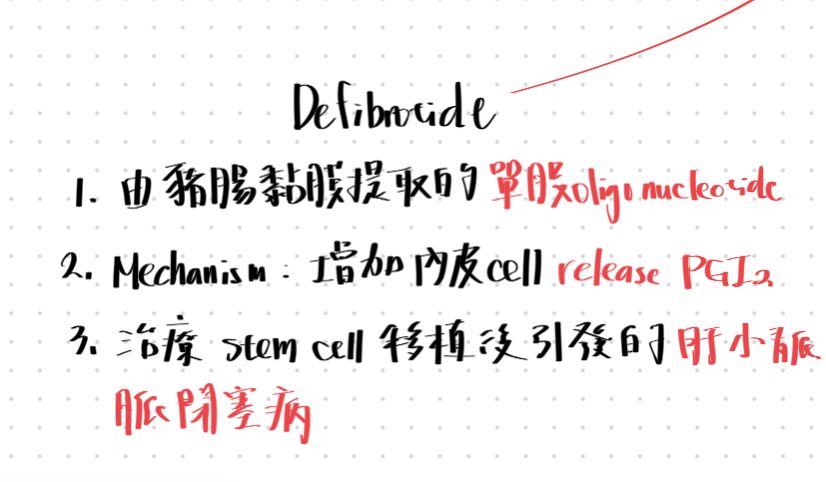 Defibrotide
1. 由豬腸黏膜提取的單股oligonucleotide
2. Mechanism : 增加內皮cell release PGI2
3. 治療 stem cell 移植後引發的肝小靜脈
脈閉塞病